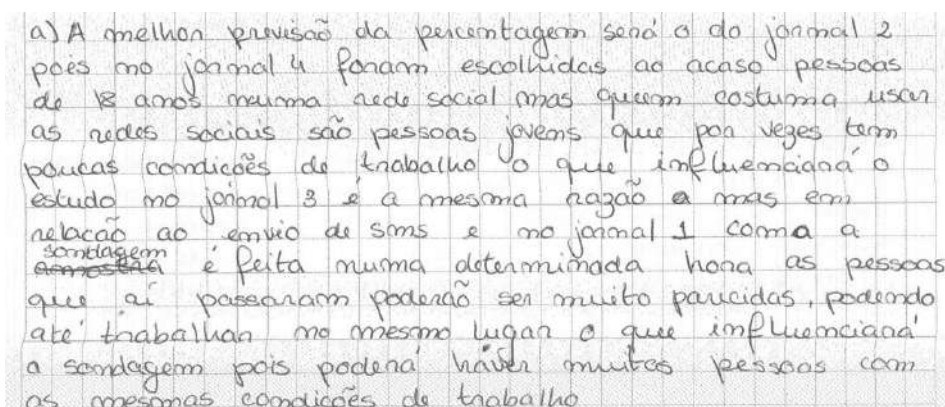 a) A melhor previsão da percentagem será o do jornal 2
pois no jornal 4 foram escolhidas ao acaso pessoas
de 18 anos numa rede social mas quem costuma usar
as redes sociais são pessoas jovens que por vezes tem
poucas condições de trabalho o que influenciará o
estudo no jornal 3 é a mesma razão mas em
relação ao envio de sms e no jornal 1 como a
sondagem é feita numa determinada hora as pessoas
que aí passaram poderão ser muito parecidas, podendo
até trabalhar no mesmo lugar o que influenciará
a sondagem pois poderá haver muitas pessoas com
as mesmas condições de trabalho